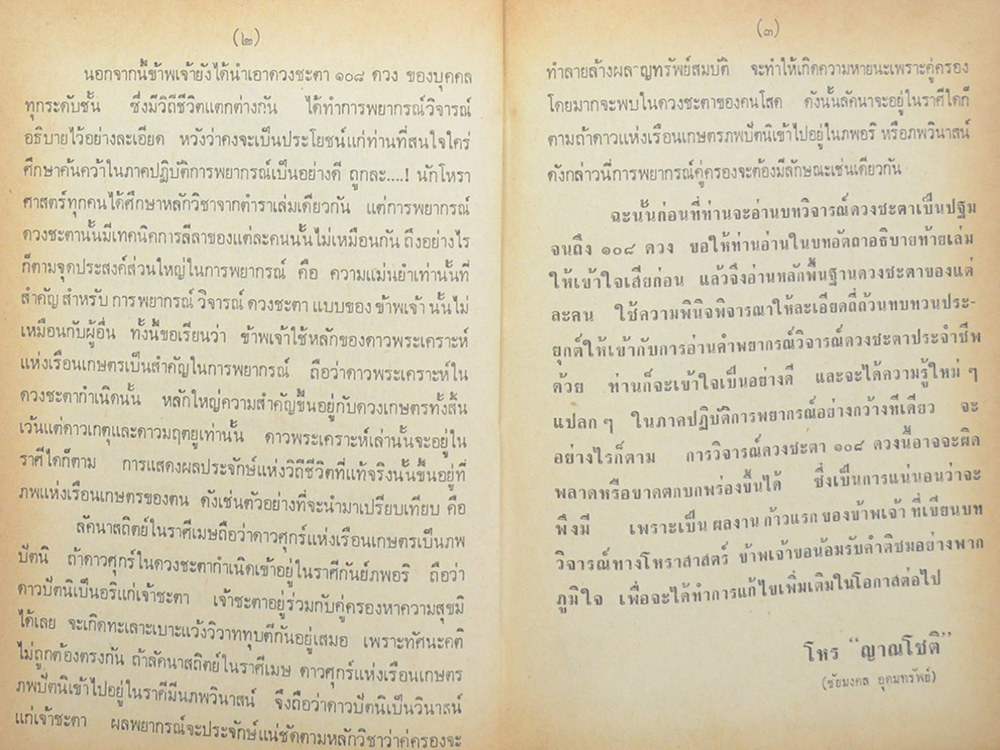 (๒)
นอกจากนี้ข้าพเจ้ายังได้นำเอาดวงชะตา ๑๐๘ ดวง ของบุคคล
ทุกระดับชั้น ซึ่งมีวิถีชีวิตแตกต่างกัน ได้ทำการพยากรณ์วิจารณ์
อธิบายไว้อย่างละเอียด หวังว่าคงจะเป็นประโยชน์แก่ท่านที่สนใจใคร่
ศึกษาค้นคว้าในภาคปฏิบัติการพยากรณ์เป็นอย่างดี ถูกละ....! นักโหรา
ศาสตร์ทุกคนได้ศึกษาหลักวิชาจากตำราเล่มเดียวกัน แต่การพยากรณ์
ดวงชะตานั้นมีเทคนิคการลีลาของแต่ละคนนั้นไม่เหมือนกัน ถึงอย่างไร
ก็ตามจุดประสงค์ส่วนใหญ่ในการพยากรณ์ คือ ความแม่นยำเท่านั้นที่
สำคัญ สำหรับ การพยากรณ์ วิจารณ์ ดวงชะตา แบบของ ข้าพเจ้า นั้น ไม่
เหมือนกับผู้อื่น ทั้งนี้ขอเรียนว่า ข้าพเจ้าใช้หลักของดาวพระเคราะห์
แห่งเรือนเกษตรเป็นสำคัญในการพยากรณ์ ถือว่าดาวพระเคราะห์ใน
ดวงชะตากำเนิดนั้น หลักใหญ่ความสำคัญขึ้นอยู่กับดวงเกษตรทั้งสิ้น
เว้นแต่ดาวเกตุและดาวมฤตยูเท่านั้น ดาวพระเคราะห์เหล่านั้นจะอยู่ใน
ราศีใดก็ตาม การแสดงผลประจักษ์แห่งวิถีชีวิตที่แท้จริงนั้นขึ้นอยู่ที่
ภพแห่งเรือนเกษตรของตน ดังเช่นตัวอย่างที่จะนำมาเปรียบเทียบ คือ
ลัคนาสถิตย์ในราศีเมษถือว่าดาวศุกร์แห่งเรือนเกษตรเป็นภพ
ปัตนิ ถ้าดาวศุกร์ในดวงชะตากำเนิดเข้าอยู่ในราศีกันย์ภพอริ ถือว่า
ดาวปัตนิเป็นอริแก่เจ้าชะตา เจ้าชะตาอยู่ร่วมกับคู่ครองหาความสุขมิ
ได้เลย จะเกิดทะเลาะเบาะแว้งวิวาททุบตีกันอยู่เสมอ เพราะทัศนะคติ
ไม่ถูกต้องตรงกัน ถ้าลัคนาสถิตย์ในราศีเมษ ดาวศุกร์แห่งเรือนเกษตร
ภพปัตนิเข้าไปอยู่ในราศีมีนภพวินาสน์ จึงถือว่าดาวปัตนิเป็นวินาสน์
แก่เจ้าชะตา ผลพยากรณ์จะประจักษ์แน่ชัดตามหลักวิชาว่าคู่ครองจะ
(๓)
ทำลายล้างผลาญทรัพย์สมบัติ จะทำให้เกิดความหายนะเพราะคู่ครอง
โดยมากจะพบในดวงชะตาของคนโสด ดังนั้นลัคนาจะอยู่ในราศีใดก็
ตามถ้าดาวแห่งเรือนเกษตรภพปัตนิเข้าไปอยู่ในภพอริ หรือภพวินาสน์
ดังกล่าวนี้การพยากรณ์คู่ครองจะต้องมีลักษณะเช่นเดียวกัน
ฉะนั้นก่อนที่ท่านจะอ่านบทวิจารณ์ดวงชะตาเป็นปฐม
จนถึง ๑๐๘ ดวง ขอให้ท่านอ่านในบทอัตถาอธิบายท้ายเล่ม
ให้เข้าใจเสียก่อน แล้วจึงอ่านหลักพื้นฐานดวงชะตาของแต่
ละคน ใช้ความพินิจพิจารณาให้ละเอียดถี่ถ้วนทบทวนประ-
ยุกต์ให้เข้ากับการอ่านคำพยากรณ์วิจารณ์ดวงชะตาประจำชีพ
ด้วย ท่านก็จะเข้าใจเป็นอย่างดี และจะได้ความรู้ใหม่ ๆ
แปลก ๆ ในภาคปฏิบัติการพยากรณ์อย่างกว้างทีเดียว จะ
อย่างไรก็ตาม การวิจารณ์ดวงชะตา ๑๐๘ ดวงนี้อาจจะผิด
พลาดหรือขาดตกบกพร่องขึ้นได้ ซึ่งเป็นการแน่นอนว่าจะ
พึงมี เพราะเป็น ผลงาน ก้าวแรก ของข้าพเจ้า ที่เขียนบท
วิจารณ์ทางโหราสาสตร์ ข้าพเจ้าขอน้อมรับคำติชมอย่างพาก
ภูมิใจ เพื่อจะได้ทำการแก้ไขเพิ่มเติมในโอกาสต่อไป
โหร “ญาณโชติ”
(ชัยมงคล อุดมทรัพย์)